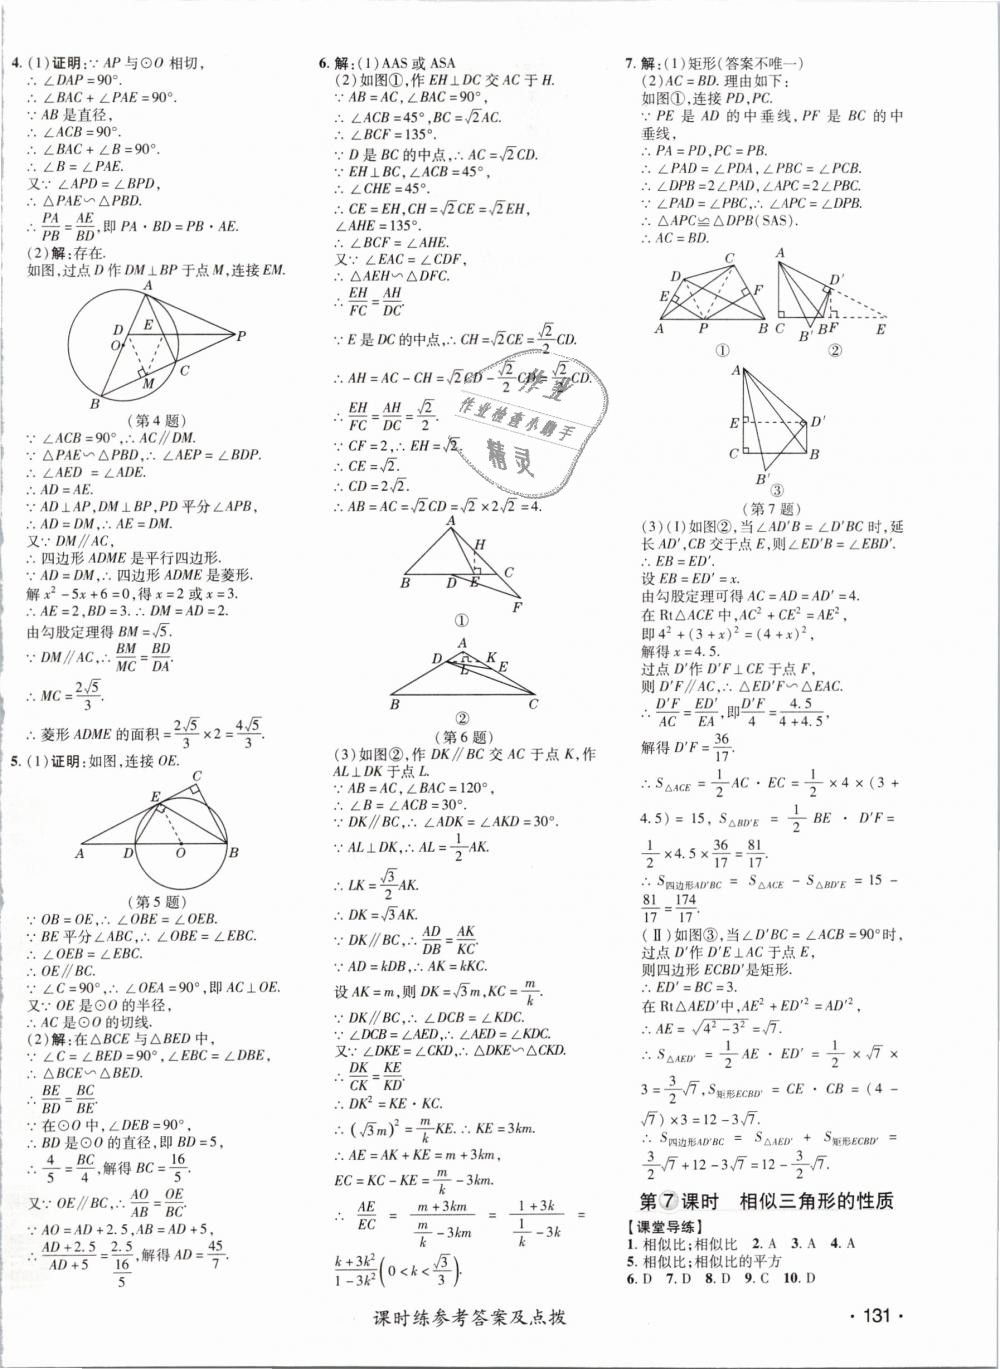 4. (1)证明:∵ AP 与⊙O 相切,
∴ ∠DAP=90°.
∴ ∠BAC+∠PAE=90°.
∵ AB 是直径,
∴ ∠ACB=90°.
∴ ∠BAC+∠B=90°.
∴ ∠B=∠PAE.
又∵ ∠APD=∠BPD,
∴ △PAE∽△PBD.
∴ PA/PB=AE/BD,即 PA·BD=PB·AE.
(2)解:存在.
如图,过点 D 作 DM⊥BP 于点 M,连接 EM.
A
D E P
O
M C
B
(第 4 题)
∵ ∠ACB=90°,∴ AC∥DM.
∵ △PAE∽△PBD,∴ ∠AEP=∠BDP.
∴ ∠AED =∠ADE.
∴ AD=AE.
∵ AD⊥AP,DM⊥BP,PD 平分∠APB,
∴ AD=DM,∴ AE=DM.
又∵ DM∥AC,
∴ 四边形 ADME 是平行四边形.
∵ AD=DM,∴ 四边形 ADME 是菱形.
解 x²-5x+6=0,得 x=2 或 x=3.
∴ AE=2,BD=3.∴ DM=AD=2.
由勾股定理得 BM=√5.
∵ DM∥AC,∴ BM/MC=BD/DA.
∴ MC=2√5/3.
∴ 菱形 ADME 的面积=2√5/3×2=4√5/3.
5. (1)证明:如图,连接 OE.
C
E
A D O B
(第 5 题)
∵ OB=OE,∴ ∠OBE=∠OEB.
∵ BE 平分∠ABC,∴ ∠OBE=∠EBC.
∴ ∠OEB=∠EBC.
∴ OE∥BC.
∵ ∠C=90°,∴ ∠OEA=90°,即 AC⊥OE.
又∵ OE 是⊙O 的半径,
∴ AC 是⊙O 的切线.
(2)解:在△BCE 与△BED 中,
∵ ∠C=∠BED=90°,∠EBC=∠DBE,
∴ △BCE∽△BED.
∴ BE/BD=BC/BE.
∵ 在⊙O 中,∠DEB=90°,
∴ BD 是⊙O 的直径,即 BD=5,
∴ 4/5=BC/4,解得 BC=16/5.
又∵ OE∥BC,∴ AO/AB=OE/BC.
∵ AO=AD+2.5,AB=AD+5,
∴ AD+2.5/AD+5=2.5/(16/5),解得 AD=45/7.
6. 解:(1)AAS 或 ASA
(2)如图①,作 EH⊥DC 交 AC 于 H.
∵ AB=AC,∠BAC=90°,
∴ ∠ACB=45°,BC=√2AC.
∴ ∠BCF=135°.
∵ D 是 BC 的中点,∴ AC=√2CD.
∵ EH⊥BC,∠ACB=45°,
∴ ∠CHE=45°.
∴ CE=EH,CH=√2CE=√2EH,
∠AHE=135°.
∴ ∠BCF=∠AHE.
又∵ ∠EAC=∠CDF,
∴ △AEH∽△DFC.
∴ EH/FC=AH/DC.
∵ E 是 DC 的中点,∴ CH=√2CE=√2/2CD.
∴ AH=AC-CH=√2CD-√2/2CD=√2/2CD.
∴ EH/FC=AH/DC=√2/2.
∵ CF=2,∴ EH=√2.
∴ CE=√2.
∴ CD=2√2.
∴ AB=AC=√2CD=√2×2√2=4.
作业
作业检查小助手
精灵
A
H
B D E C
F
①
A
D K
L E
B C
②
(第 6 题)
(3)如图②,作 DK∥BC 交 AC 于点 K,作
AL⊥DK 于点 L.
∵ AB=AC,∠BAC=120°,
∴ ∠B=∠ACB=30°.
∵ DK∥BC,∴ ∠ADK=∠AKD=30°.
∵ AL⊥DK,∴ AL=1/2AK.
∴ LK=√3/2AK.
∴ DK=√3AK.
∵ DK∥BC,∴ AD/DB=AK/KC.
∵ AD=kDB,∴ AK=kKC.
设 AK=m,则 DK=√3m,KC=m/k.
∵ DK∥BC,∴ ∠DCB=∠KDC.
∵ ∠DCB=∠AED,∴ ∠AED=∠KDC.
又∵ ∠DKE=∠CKD,∴ △DKE∽△CKD.
∴ DK/CK=KE/KD.
∴ DK²=KE·KC.
∴ (√3m)²=m/kKE.∴ KE=3km.
∴ AE=AK+KE=m+3km,
EC=KC-KE=m/k-3km.
∴ AE/EC=(m+3km)/(m/k-3km)=(1+3k)/(1/k-3k)=
(k+3k²)/(1-3k²)(0<k<√3/3).
7. 解:(1)矩形(答案不唯一)
(2)AC=BD. 理由如下:
如图①,连接 PD,PC.
∵ PE 是 AD 的中垂线,PF 是 BC 的中
垂线,
∴ PA=PD,PC=PB.
∴ ∠PAD=∠PDA,∠PBC=∠PCB.
∴ ∠DPB=2∠PAD,∠APC=2∠PBC.
∵ ∠PAD=∠PBC,∴ ∠APC=∠DPB.
∴ △APC≌△DPB(SAS).
∴ AC=BD.
C
D
E F
A P B
①
A
D′
C B F E
B′
②
A
E D′
C B
B′
③
(第 7 题)
(3)(Ⅰ)如图②,当∠AD′B=∠D′BC 时,延
长 AD′,CB 交于点 E,则∠ED′B=∠EBD′.
∴ EB=ED′.
设 EB=ED′=x.
由勾股定理可得 AC=AD=AD′=4.
在 Rt△ACE 中,AC²+CE²=AE²,
即 4²+(3+x)²=(4+x)²,
解得 x=4.5.
过点 D′作 D′F⊥CE 于点 F,
则 D′F∥AC,∴ △ED′F∽△EAC.
∴ D′F/AC=ED′/EA,即D′F/4=4.5/4+4.5,
解得 D′F=36/17.
∴ S△ACE=1/2AC·EC=1/2×4×(3+
4.5)=15, S△BD′E=1/2BE·D′F=
1/2×4.5×36/17=81/17.
∴ S四边形AD′BC=S△ACE-S△BD′E=15-
81/17=174/17.
(Ⅱ)如图③,当∠D′BC=∠ACB=90°时,
过点 D′作 D′E⊥AC 于点 E,
则四边形 ECBD′是矩形.
∴ ED′=BC=3.
在 Rt△AED′中,AE²+ED′²=AD′²,
∴ AE=√4²-3²=√7.
∴ S△AED′=1/2AE·ED′=1/2×√7×
3=3/2√7,S矩形ECBD′=CE·CB=(4-
√7)×3=12-3√7.
∴ S四边形AD′BC=S△AED′+S矩形ECBD′=
3/2√7+12-3√7=12-3/2√7.
第⑦课时 相似三角形的性质
【课堂导练】
1. 相似比;相似比 2. A 3. A 4. A
5. 相似比;相似比的平方
6. D 7. D 8. D 9. C 10. D
课时练参考答案及点拨
·131·